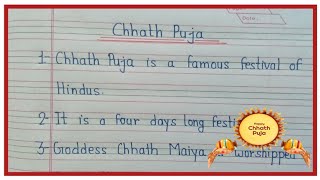 Date.
Chhath Puja
1- Chhath Puja is a famous festival of
Hindus.
2- It is a four days long
3- Goddess Chhath Maiya worshipped
Happy
Chhath
Puja